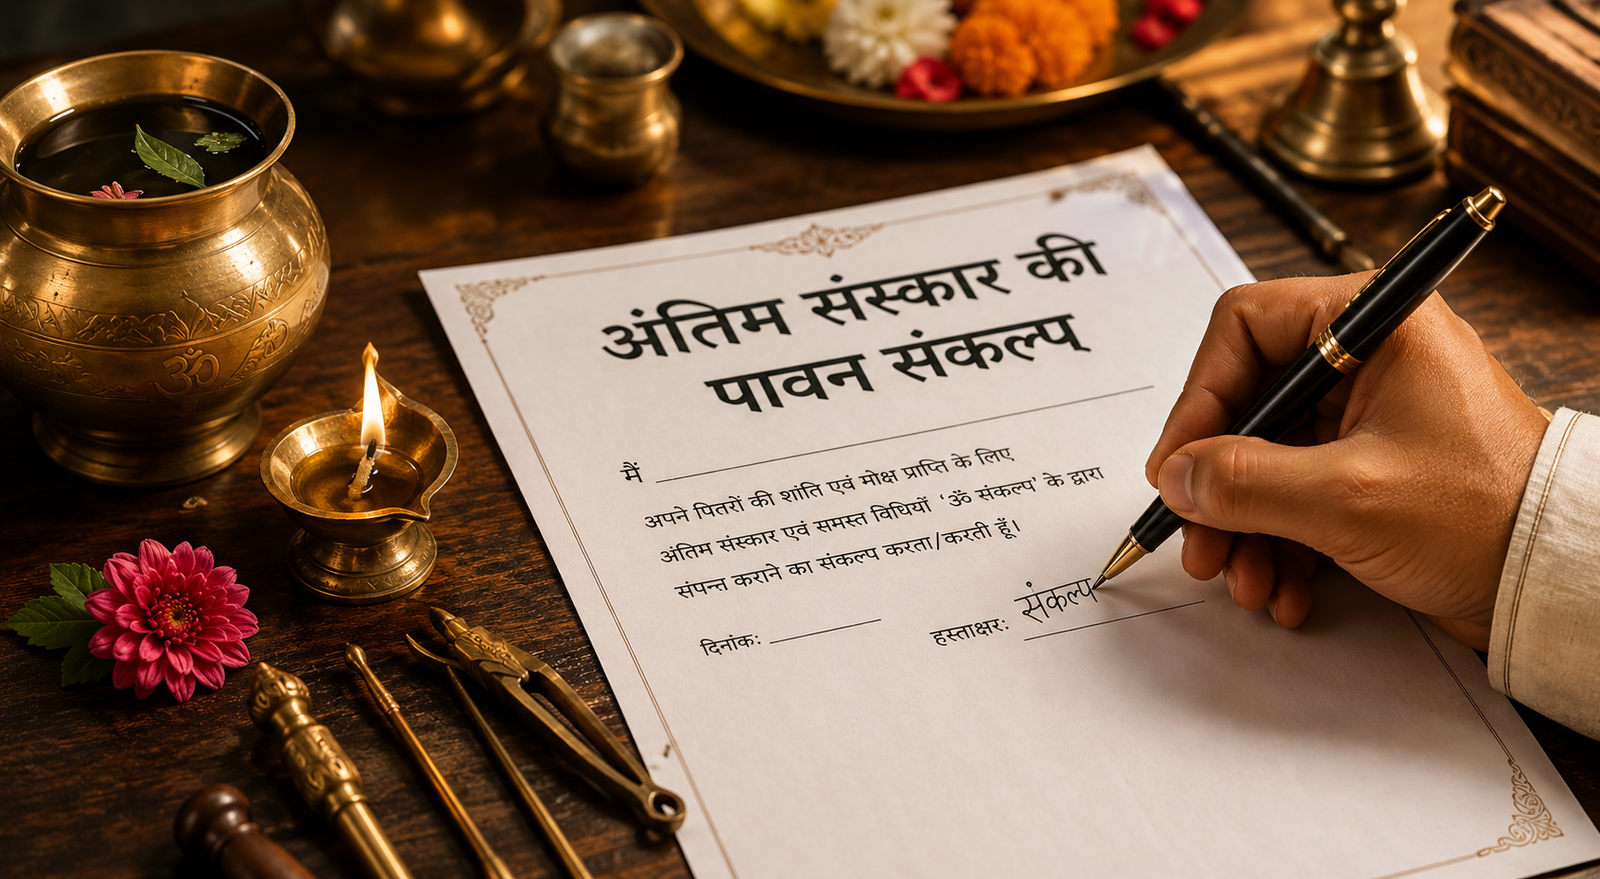 अंतिम संस्कार की
पावन संकल्प
मैं
अपने पितरों की शांति एवं मोक्ष प्राप्ति के लिए
अंतिम संस्कार एवं समस्त विधियों 'ॐ संकल्प' के द्वारा
संपन्न कराने का संकल्प करता/करती हूँ।
दिनांक: हस्ताक्षर: संकल्प
ॐ